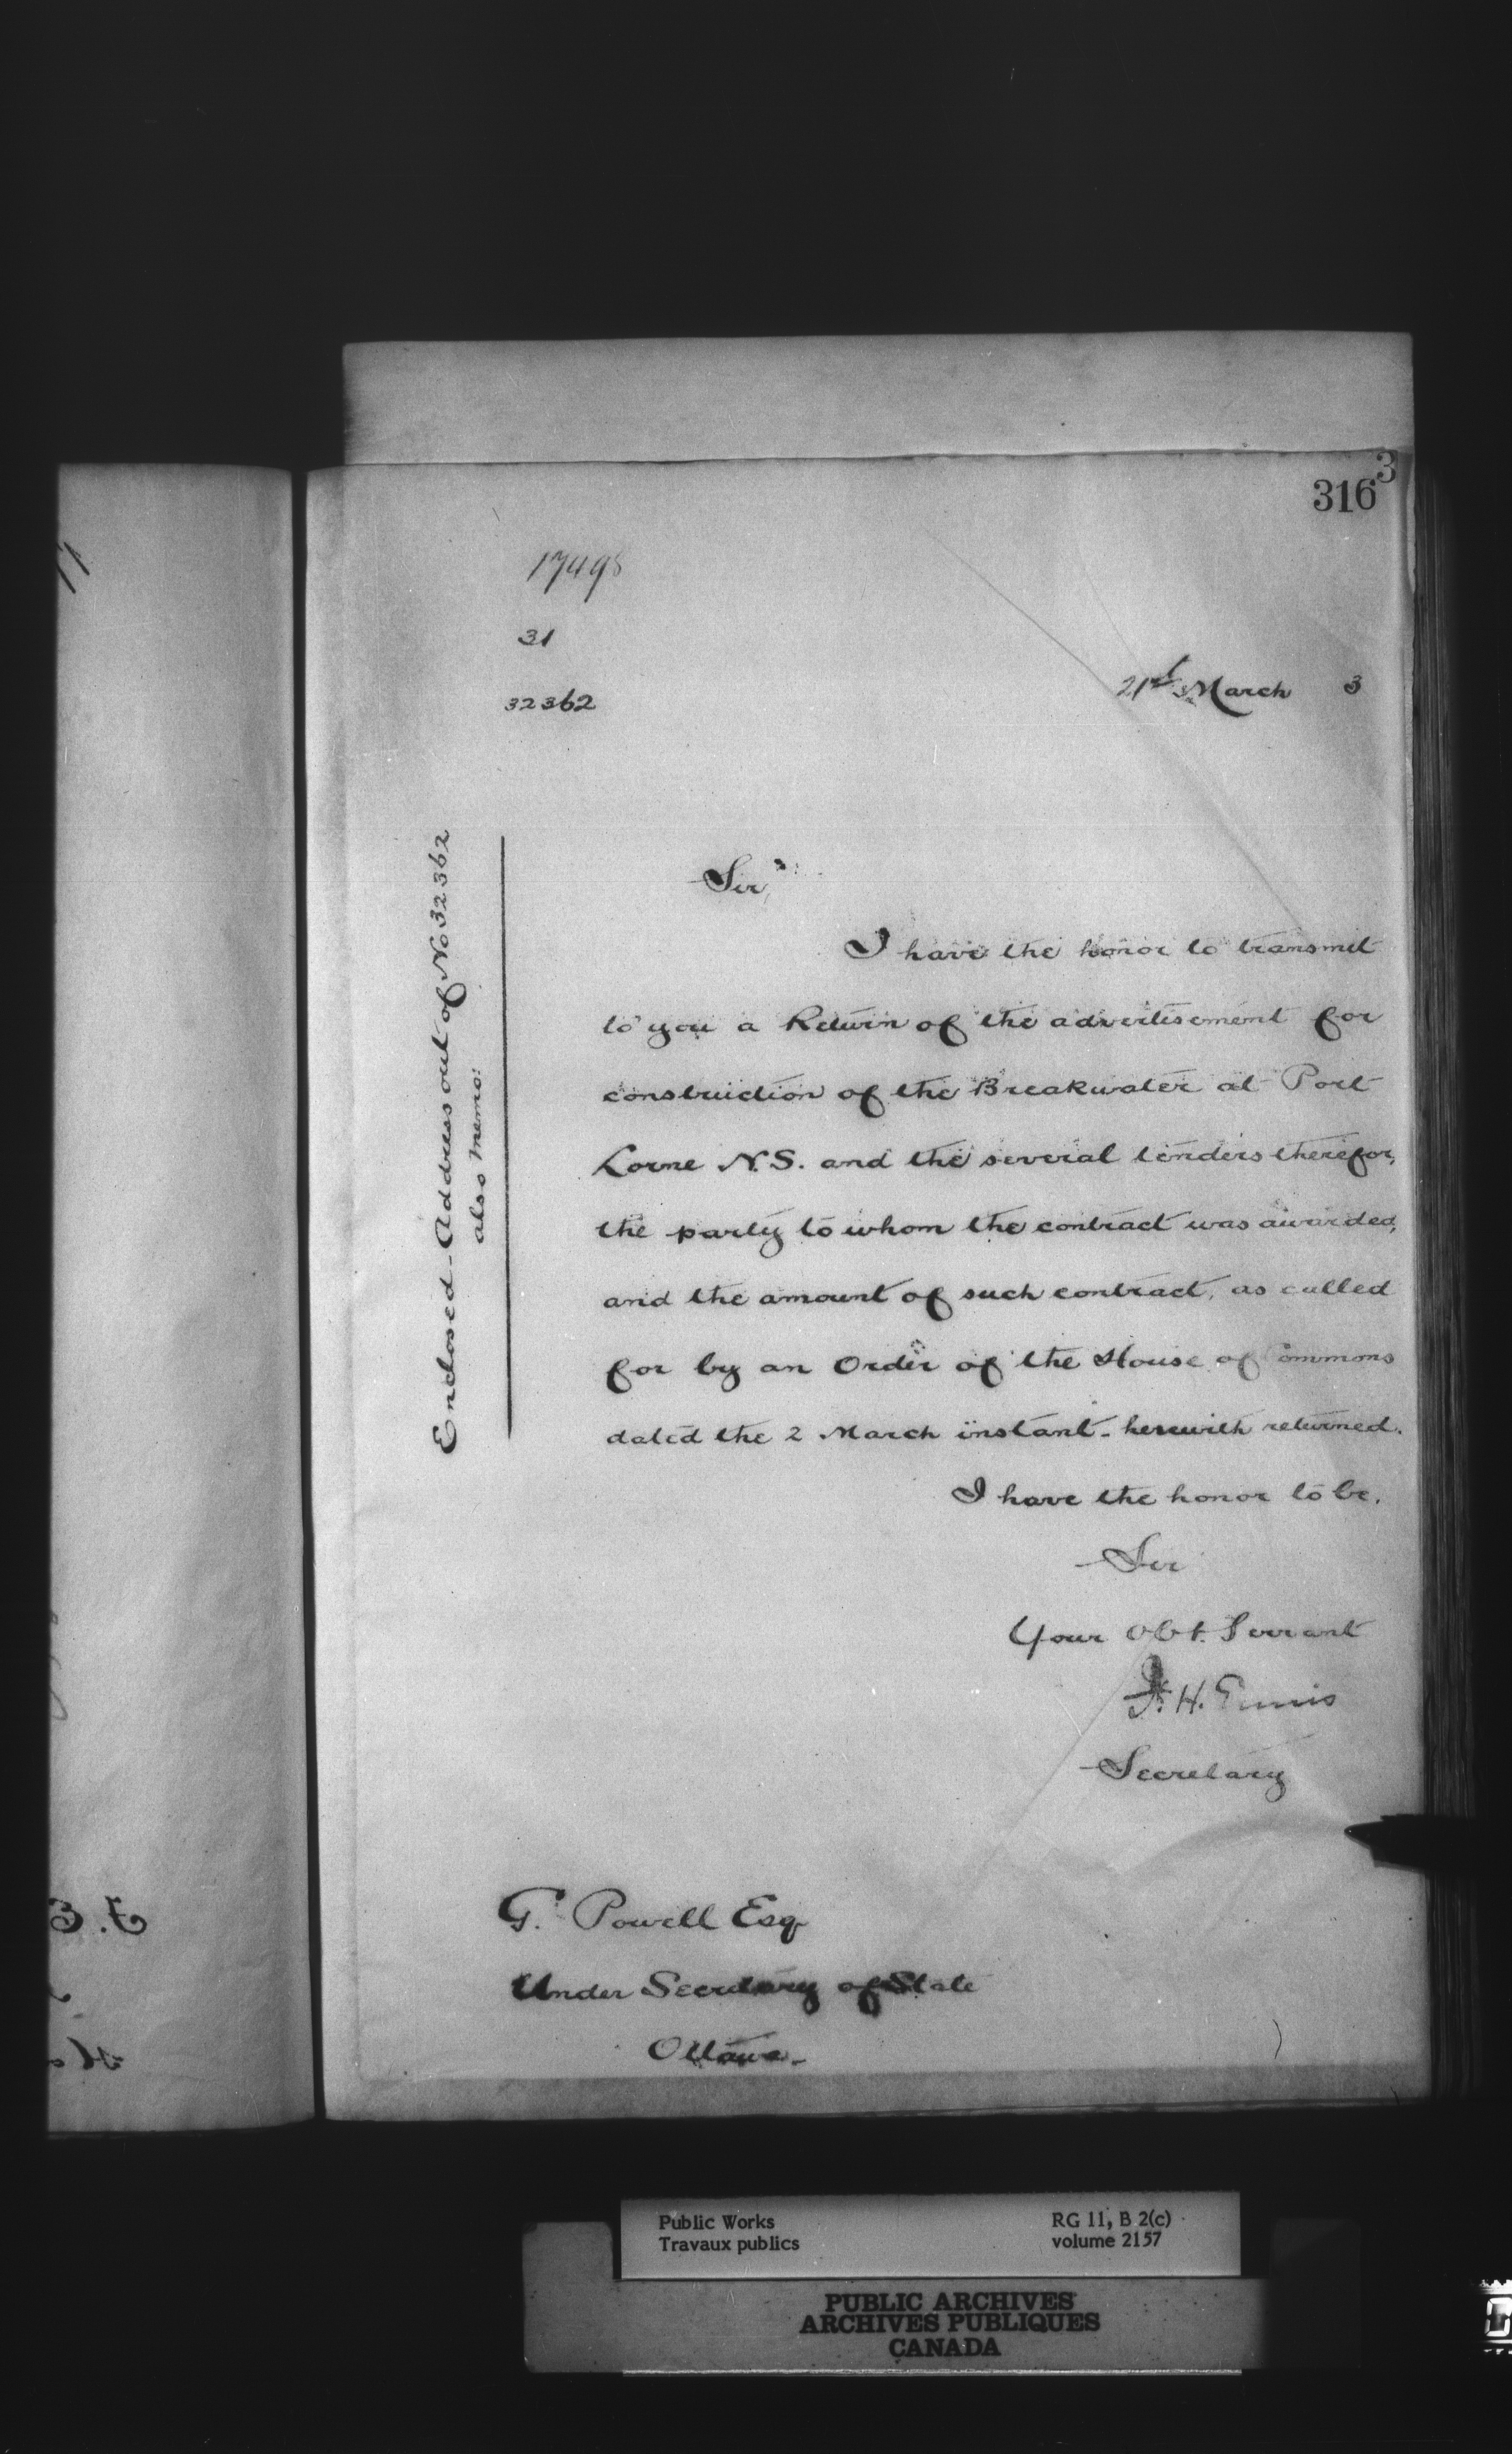 316
3
17498
31
32362
21st March 3
Enclosed - Address out of No 32362
also memo:
Sir,
I have the honor to transmit
to you a Return of the advertisement for
construction of the Breakwater at Port
Lorne N.S. and the several tenders therefor,
the party to whom the contract was awarded,
and the amount of such contract, as called
for by an Order of the House of Commons
dated the 2 March instant - herewith returned.
I have the honor to be.
Sir
Your Obt. Servant
F. H. Ennis
Secretary
G. Powell Esq
Under Secretary of State
Ottawa -
Public Works
Travaux publics
RG 11, B 2(c)
volume 2157
PUBLIC ARCHIVES
ARCHIVES PUBLIQUES
CANADA